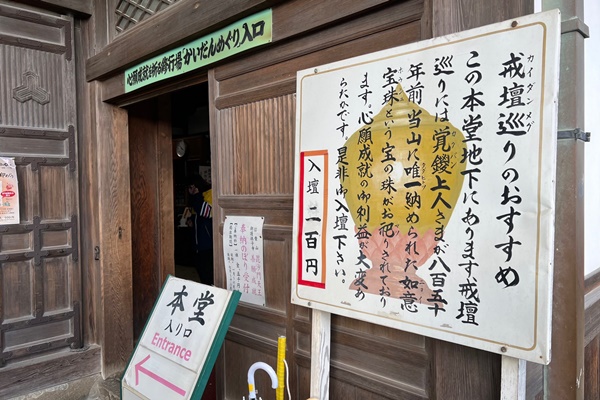 心願成就を祈る修行場「かいだんめぐり」入口
戒壇巡りのおすすめ
カイダンメグ
この本堂地下にあります、戒壇
巡りには覚鑁上人さまが八百五十
カクバン
年前、当山に唯一納められた如意
宝珠という宝の珠がお祀りされており
ます。心願成就の御利益が大変あ
らたかです。是非御入壇下さい。
入壇 二百円
奉納のぼり受付
本堂
入り口
Entrance